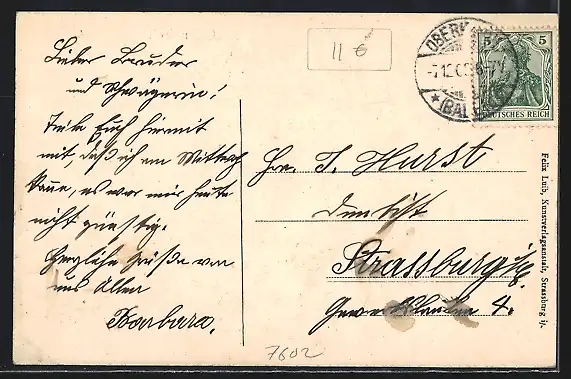 Lieber Bruder
und Schwägerin!
Teile Euch hiermit
mit, daß ich am Mittag
komme, es war mir heute
nicht günstig.
Herzliche Grüße von
uns Allen
Barbara.
11 6
OBERK
* (BA
5 5
DEUTSCHES REICH
Hr. J. Hurst
Dentist
Strassburg i/E.
4.
Felix Luib, Kunstverlagsanstalt, Strassburg i/.
7602